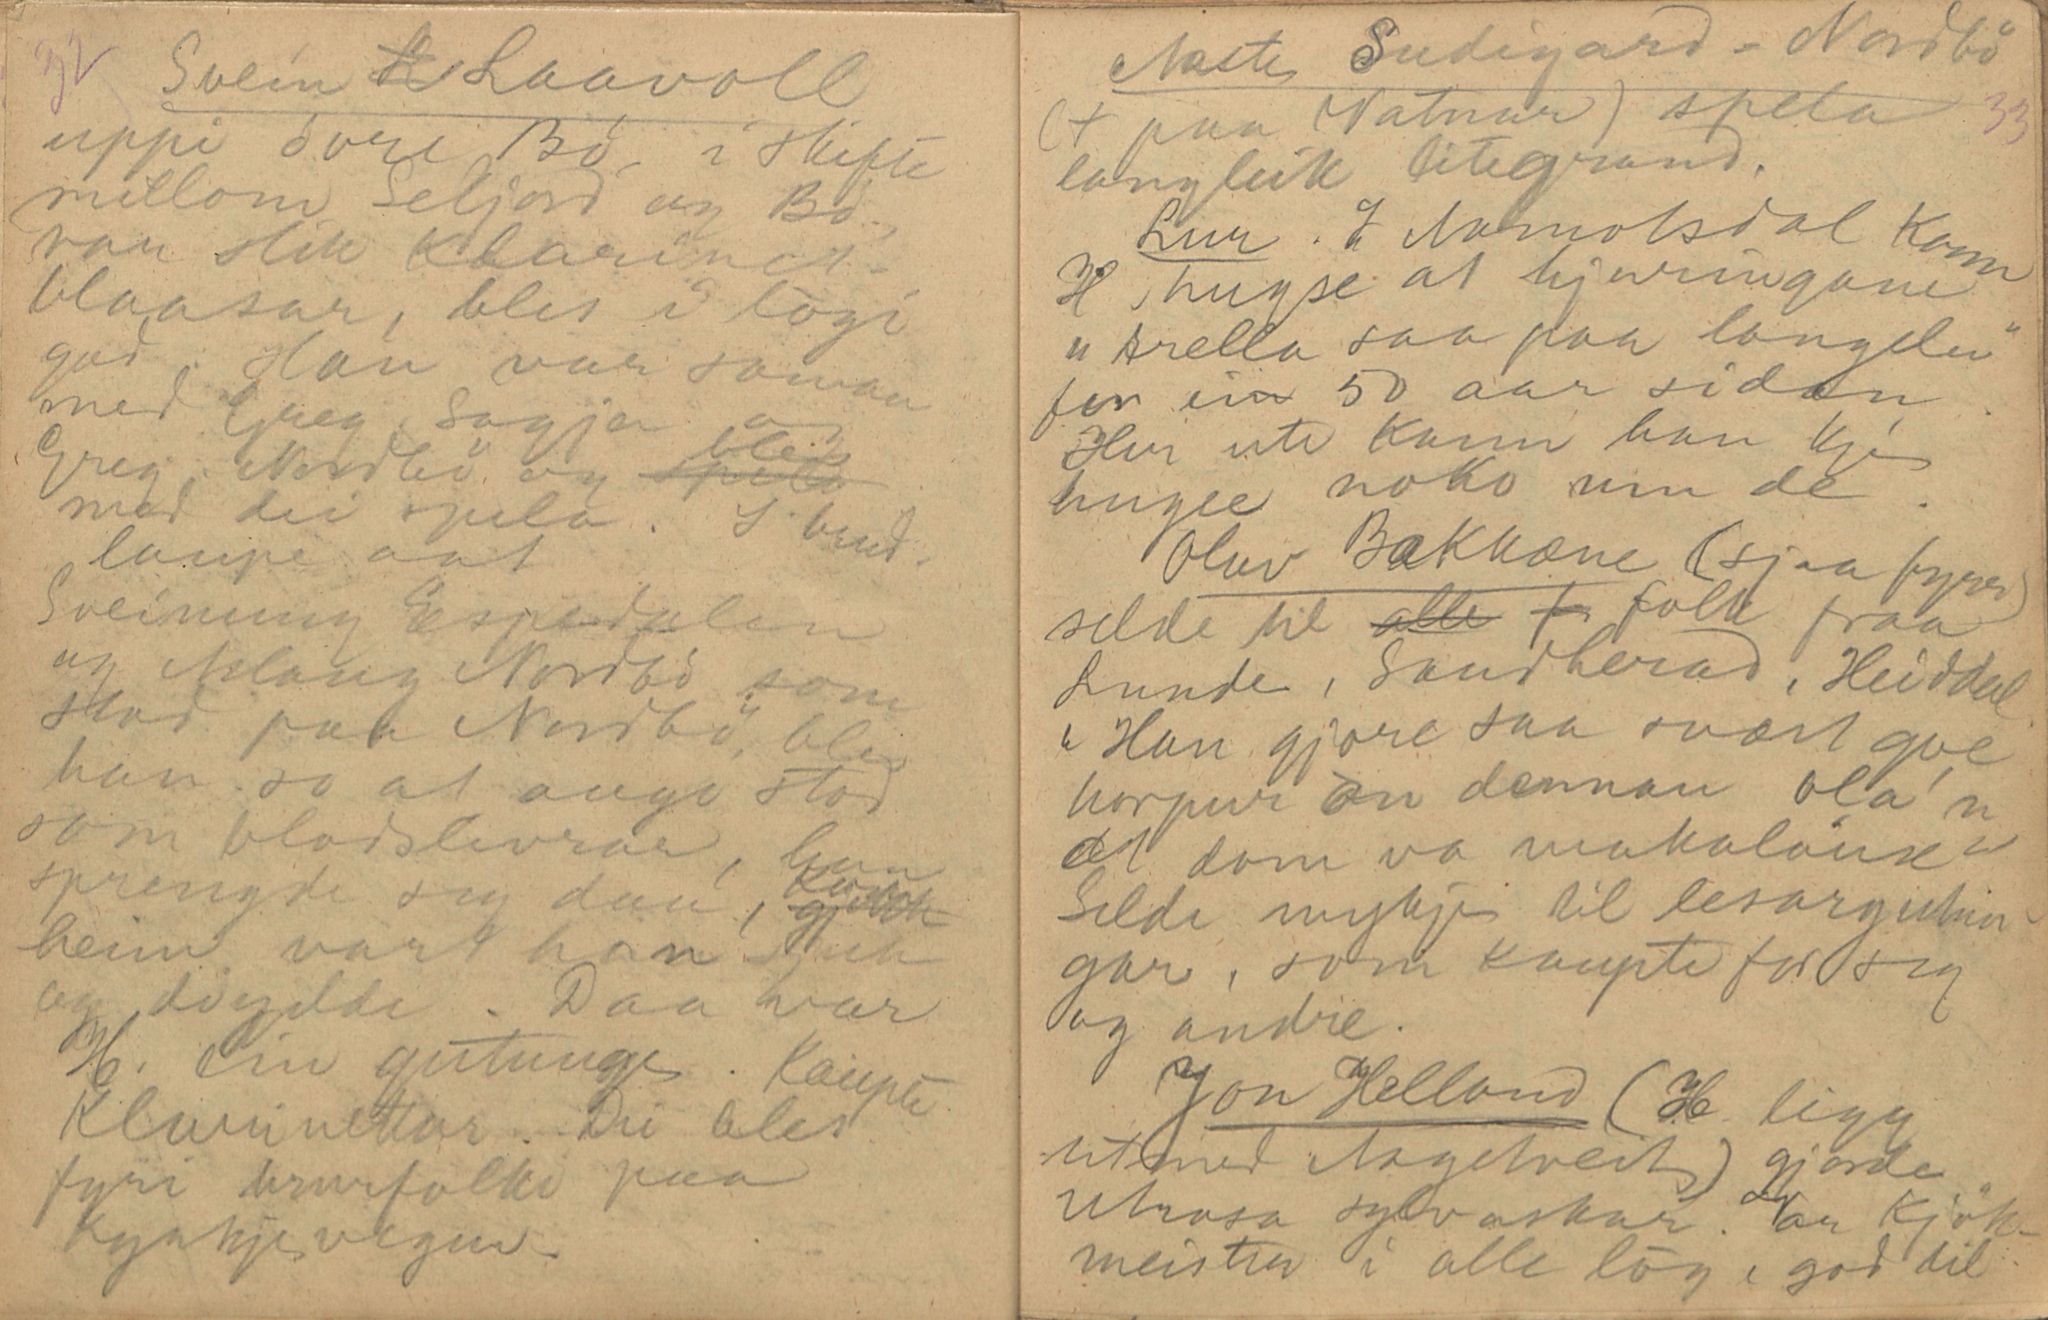 32
Svein Laavoll
uppi övre Bö, i skifte
millom Seljord og Bö,
var slik klarinet-
blaasar, bles i lögi
god. Han var saman
med Greg. Sagja og
Greg. Nordbö og spela bles
med dei spela. I brud-
laupe aat
Sveinung Espedalen
og Aslaug Nordbö som
stod paa Nordbö, bles
han so at augo stod
som blodslevrar, han
sprengde seg daa,
heim vart han sjuk
og döydde. Daa var
H. ein gutunge. Kaupte
Klarinettar. Dei bles
fyri brurfolki paa
kyrkjevegen.
33
Aaste Sudigard-Nordbö
(+ paa Vatnar) spela
langleik litegrand.
Lur. I Aamotsdal kann
H. hugse at hjuringane
"trella saa paa langelu"
for ein 50 aar sidan.
Her ute kann han kje
hugse noko um de.
Oluv Bakkane (sjaa fyrr)
selde til alle f folk fraa
Lunde, Sandherad, Heiddal.
"Han gjore saa svært goe
horpur än dennan Ola'n
at dom va makalöuse"
Selde mykje til lesargutun-
gar, som kaupte for seg
og andre.
Jon Helland (H ligg
utmed Aagetveit) gjorde
utrosa sylvaskar. Var Kjök-
meister i alle lög, god til